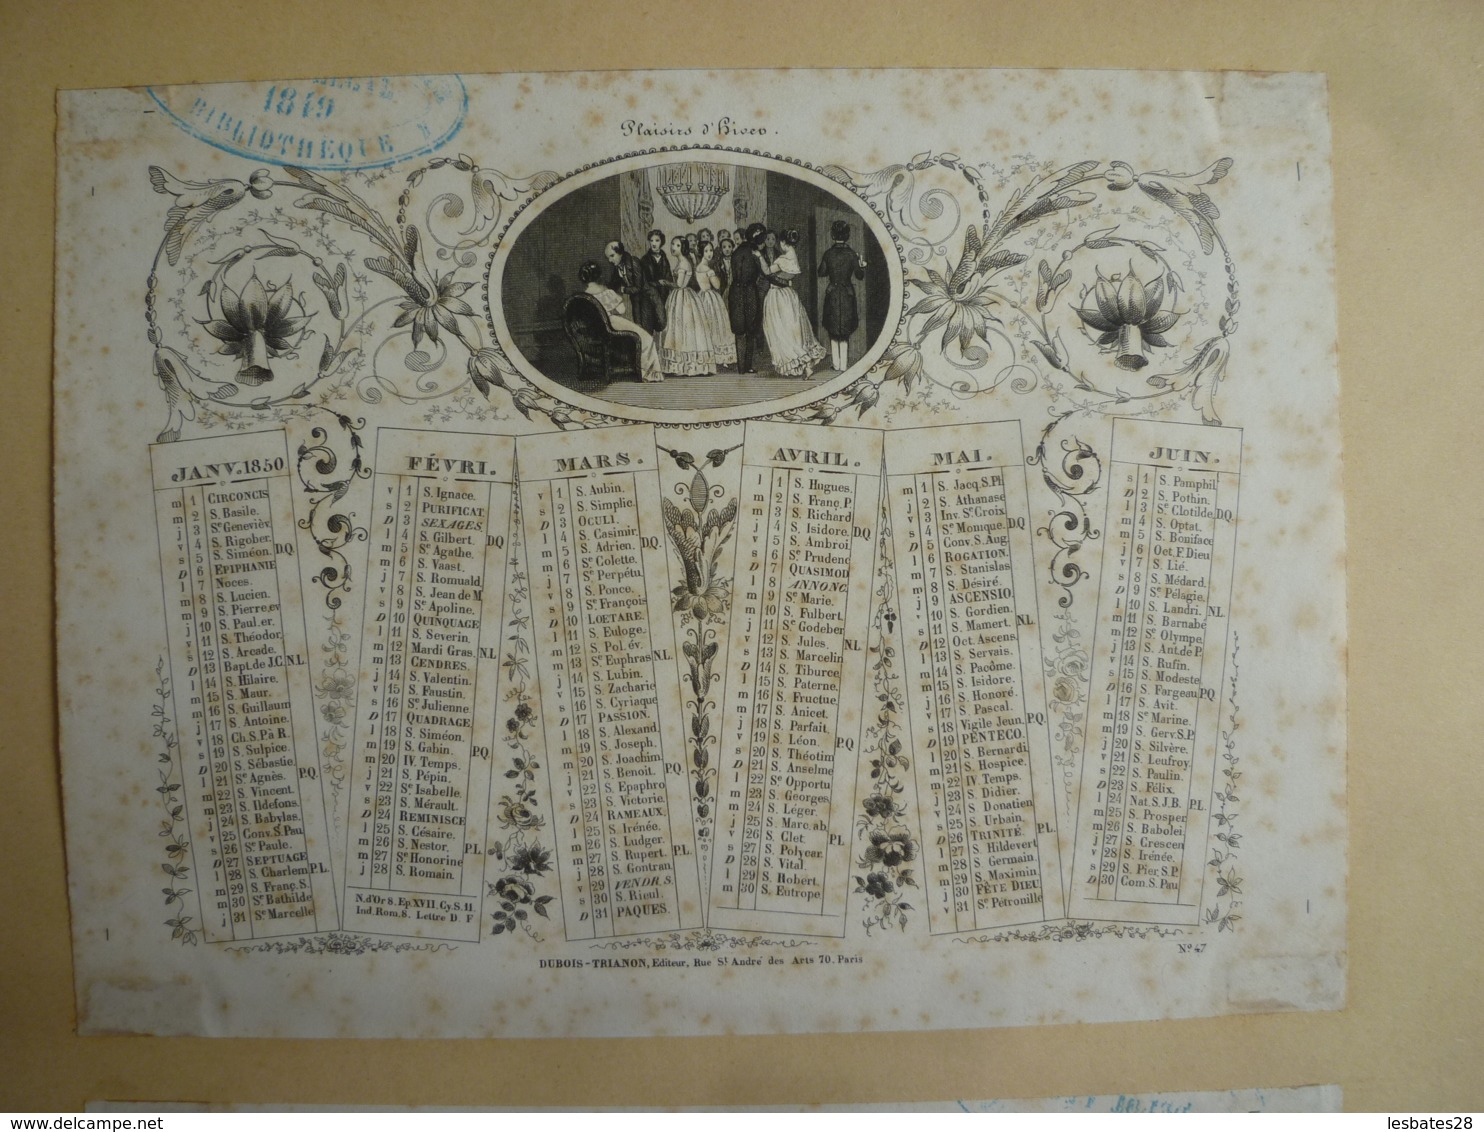 1849
BIBLIOTHÈQUE
Plaisirs d'hiver.
JANV. 1850
m 1 CIRCONCIS
m 2 S. Basile.
j 3 Se Genevièv.
v 4 S. Rigober.
s 5 S. Siméon. D.Q.
D 6 EPIPHANIE
l 7 Noces.
m 8 S. Lucien.
m 9 S. Pierre, ev
j 10 S. Paul. er.
v 11 S. Théodor.
s 12 S. Arcade.
D 13 Bapt. de J.C. N.L.
l 14 S. Hilaire.
m 15 S. Maur.
m 16 S. Guillaum
j 17 S. Antoine.
v 18 Ch. S. P. à R.
s 19 S. Sulpice.
D 20 S. Sébastie.
l 21 Se Agnès. P.Q.
m 22 S. Vincent.
m 23 S. Ildefons.
j 24 S. Babylas.
v 25 Conv. S. Pau.
s 26 Se Paule.
D 27 SEPTUAGE
l 28 S. Charlem P.L.
m 29 S. Franç. S.
m 30 Se Bathilde
j 31 Se Marcelle
FÉVRI.
v 1 S. Ignace.
s 2 PURIFICAT.
D 3 SEXAGES
l 4 S. Gilbert. D.Q
m 5 Se Agathe.
m 6 S. Vaast.
j 7 S. Romuald.
v 8 S. Jean de M.
s 9 Se Apoline.
D 10 QUINQUAGE
l 11 S. Severin.
m 12 Mardi Gras. N.L
m 13 CENDRES.
j 14 S. Valentin.
v 15 S. Faustin.
s 16 Se Julienne.
D 17 QUADRAGE
l 18 S. Siméon.
m 19 S. Gabin. P.Q.
m 20 IV. Temps.
j 21 S. Pépin.
v 22 Se Isabelle.
s 23 S. Mérault.
D 24 REMINISCE
l 25 S. Césaire.
m 26 S. Nestor. P.L
m 27 Se Honorine
j 28 S. Romain.
N. d'Or 8. Ep. XVII. Cy. S. 11.
Ind. Rom. 8. Lettre D. F
MARS.
v 1 S. Aubin.
s 2 S. Simplic.
D 3 OCULI.
l 4 S. Casimir.
m 5 S. Adrien. D.Q.
m 6 Se Colette.
j 7 Se Perpétu.
v 8 S. Ponce.
s 9 Se François
D 10 LOETARE.
l 11 S. Euloge.
m 12 S. Pol. év.
m 13 Se Euphras N.L.
j 14 S. Lubin.
v 15 S. Zacharie
s 16 S. Cyriaque
D 17 PASSION.
l 18 S. Alexand.
m 19 S. Joseph.
m 20 S. Joachim.
j 21 S. Benoit. P.Q.
v 22 S. Epaphro
s 23 S. Victorie.
D 24 RAMEAUX.
l 25 S. Irénée.
m 26 S. Ludger.
m 27 S. Rupert. P.L.
j 28 S. Gontran
v 29 VENDR. S.
s 30 S. Rieul.
D 31 PAQUES.
AVRIL.
l 1 S. Hugues.
m 2 S. Franç. P.
m 3 S. Richard
j 4 S. Isidore. D.Q
v 5 S. Ambroi
s 6 Se Prudenc
D 7 QUASIMOD
l 8 ANNONC.
m 9 Se Marie.
m 10 S. Fulbert.
j 11 Se Godeber
v 12 S. Jules. N.L
s 13 S. Marcelin
D 14 S. Tiburce
l 15 S. Paterne.
m 16 S. Fructue.
m 17 S. Anicet.
j 18 S. Parfait.
v 19 S. Léon. P.Q
s 20 S. Théotim
D 21 S. Anselme
l 22 Se Opportu
m 23 S. Georges
m 24 S. Léger.
j 25 S. Marc. ab.
v 26 S. Clet. P.L
s 27 S. Polycar.
D 28 S. Vital.
l 29 S. Robert.
m 30 S. Eutrope
MAI.
m 1 S. Jacq. S. Ph
j 2 S. Athanase
v 3 Inv. Se Croix
s 4 Se Monique. D.Q
D 5 Conv. S. Aug.
l 6 ROGATION.
m 7 S. Stanislas
m 8 S. Désiré.
j 9 ASCENSIO.
v 10 S. Gordien.
s 11 S. Mamert. N.L.
D 12 Oct. Ascens.
l 13 S. Servais.
m 14 S. Pacôme.
m 15 S. Isidore.
j 16 S. Honoré.
v 17 S. Pascal.
s 18 Vigile Jeun. P.Q.
D 19 PENTECO.
l 20 S. Bernardi.
m 21 S. Hospice.
m 22 IV. Temps.
j 23 S. Didier.
v 24 S. Donatien
s 25 S. Urbain.
D 26 TRINITÉ. P.L.
l 27 S. Hildevert
m 28 S. Germain.
m 29 S. Maximin.
j 30 FÊTE DIEU.
v 31 Se Petronille
JUIN.
s 1 S. Pamphil.
D 2 S. Pothin.
l 3 Se Clotilde. D.Q.
m 4 S. Optat.
m 5 S. Boniface
j 6 Oct. F. Dieu
v 7 S. Lié.
s 8 S. Médard.
D 9 Se Pélagie.
l 10 S. Landri. N.L
m 11 S. Barnabé
m 12 Se Olympe.
j 13 S. Ant. de P.
v 14 S. Rufin.
s 15 S. Modeste
D 16 S. Fargeau P.Q
l 17 S. Avit.
m 18 Se Marine.
m 19 S. Gerv. S. P.
j 20 S. Silvère.
v 21 S. Leufroy.
s 22 S. Paulin.
D 23 S. Félix.
l 24 Nat. S. J. B. P.L.
m 25 S. Prosper
m 26 S. Babolei.
j 27 S. Crescen
v 28 S. Irénée.
s 29 S. Pier. S. P.
D 30 Com. S. Pau
DUBOIS-TRIANON, Editeur, Rue St André des Arts 70. Paris
No 47
lesbates28